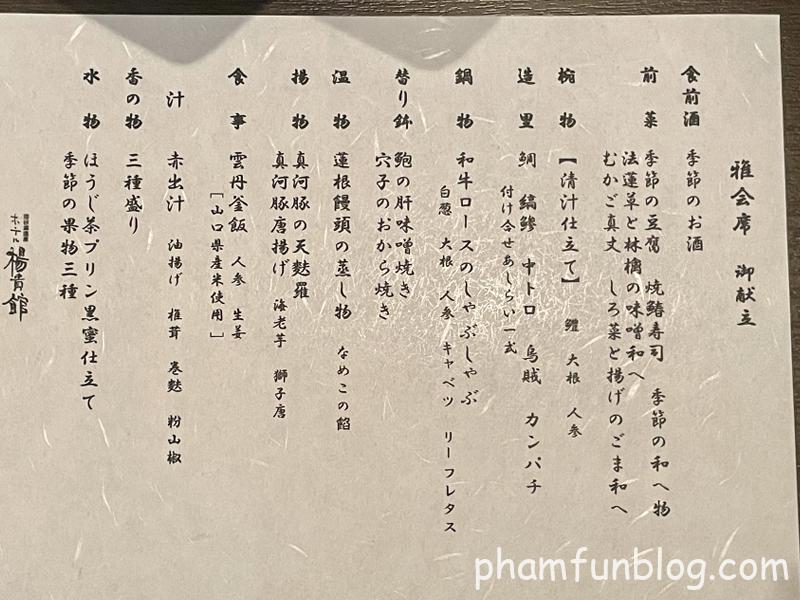 雅会席 御献立
食前酒 季節のお酒
前菜 季節の豆腐 焼鯖寿司 季節の和へ物
法蓮草と林檎の味噌和へ
むかご真丈 しろ菜と揚げのごま和へ
椀物 【清汁仕立て】 鱧 大根 人参
造里 鯛 縞鯵 中トロ 烏賊 カンパチ
付け合せあしらい一式
鍋物 和牛ロースのしゃぶしゃぶ
白葱 大根 人参 キャベツ リーフレタス
替り鉢 鮑の肝味噌焼き
穴子のおから焼き
温物 蓮根饅頭の蒸し物 なめこの餡
揚物 真河豚の天麩羅
真河豚唐揚げ 海老芋 獅子唐
食事 雲丹釜飯 人参 生姜
[山口県産米使用]
汁 赤出汁 油揚げ 椎茸 巻麩 粉山椒
香の物 三種盛り
水物 ほうじ茶プリン黒蜜仕立て
季節の果物三種
ホテル楊貴館
phamfunblog.com